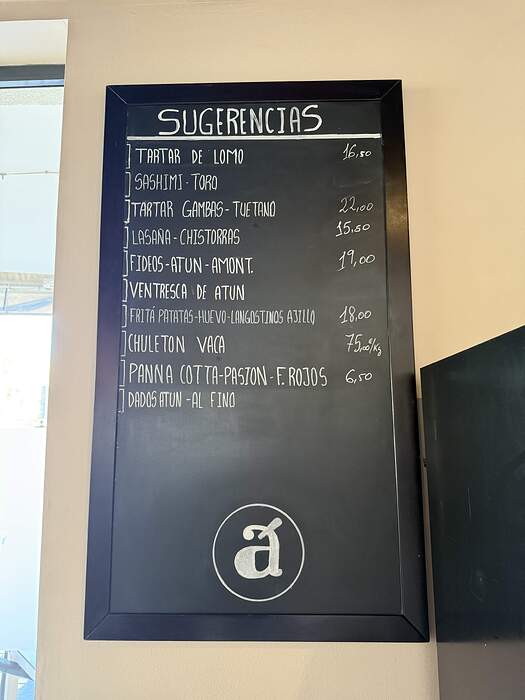 SUGERENCIAS
TARTAR DE LOMO 16,50
SASHIMI - TORO
TARTAR GAMBAS - TUETANO 22,00
LASAÑA - CHISTORRAS 15,50
FIDEOS - ATUN - AMONT. 19,00
VENTRESCA DE ATUN
FRITÁ PATATAS - HUEVO - LANGOSTINOS AJILLO 18,00
CHULETON VACA 75,00/Kg
PANNA COTTA - PASION - F. ROJOS 6,50
DADOS ATUN - AL FINO
á